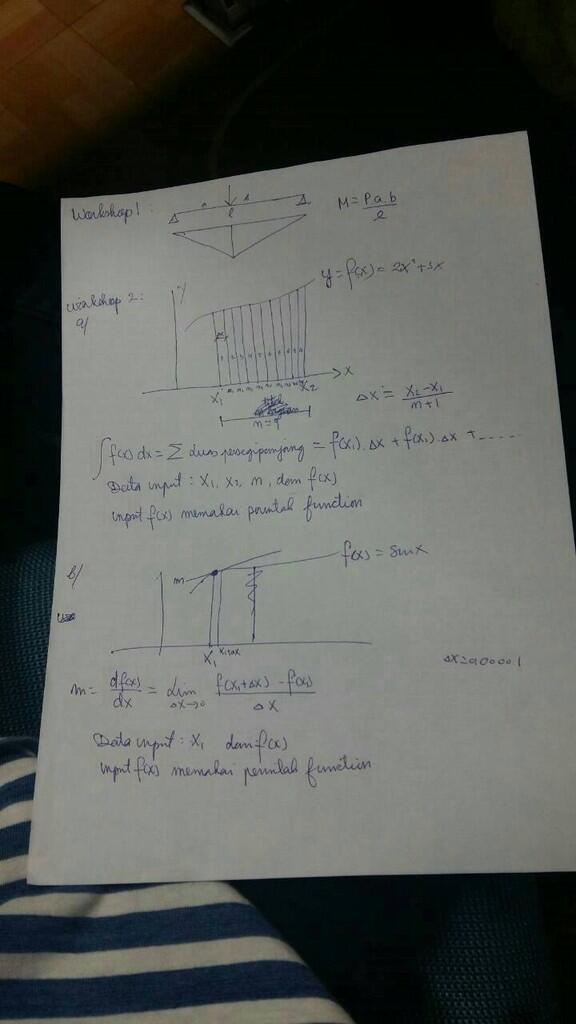 Workshop 1 :
a b
l
M = P.a.b / l
Workshop 2 :
a/
y
y = f(x) = 2x² + 3x
x
X₁ X₂
n = 9
Δx = (X₂ - X₁) / (n + 1)
∫ f(x) dx = Σ luas persegipanjang = f(X₁).Δx + f(X₂).Δx + .....
Data input : X₁, X₂, n, dan f(x)
input f(x) memakai perintah function
b/
m
f(x) = sin x
X₁ X₁+Δx
Δx = 0,00001
m = df(x)/dx = Lim Δx→0 (f(X₁+Δx) - f(X₁)) / Δx
Data input : X₁ dan f(x)
input f(x) memakai perintah function